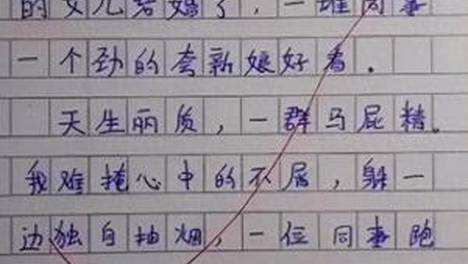 的女儿名嫣了，一堆同事
一个劲的夸新娘好看.
天生丽质，一群马屁精。
我难掩心中的不屑，躲一
边独自抽烟，一位同事跑